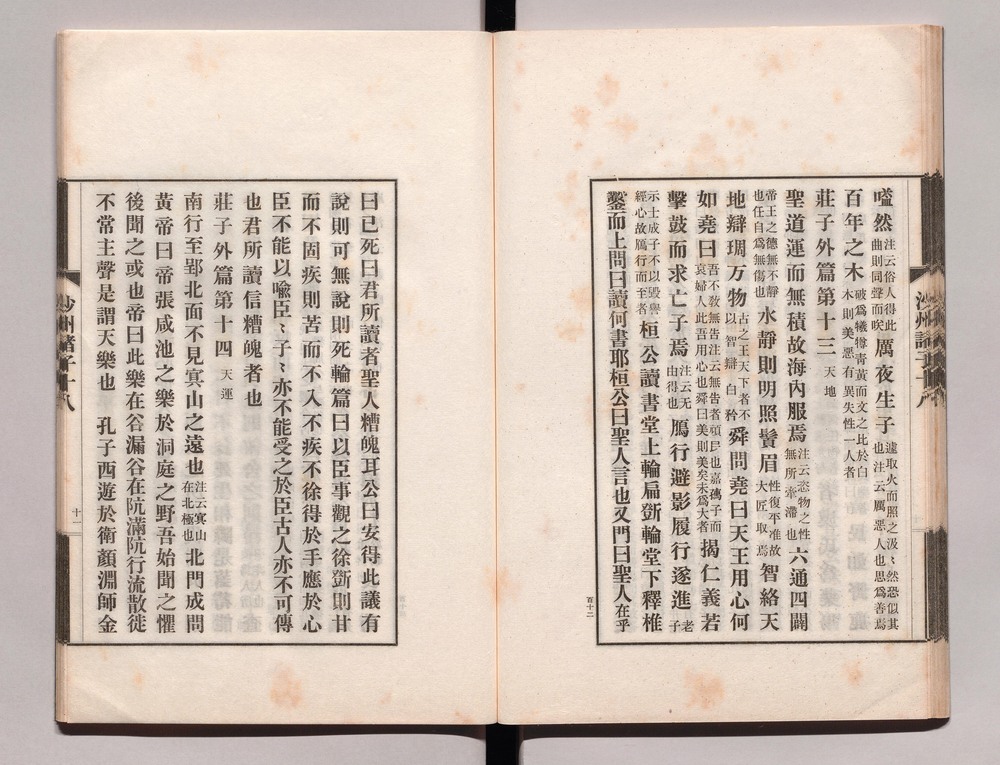 嗌然注云俗人得此曲則同聲而唉厲夜生子遠取火而照之汲〻然恐似其也注云厲惡人也思爲善焉
百年之木破爲犧罇青黃而文之比於白木則美惡有異失性一人者
莊子外篇第十三天地
聖道運而無積故海內服焉注云恣物之性無所牽滯也六通四闢
帝王之德無不靜也任自爲無傷也水靜則明照鬢眉性復平准故大匠取焉智絡天
地辯琱万物古之王天下者不以智辯白矜舜問堯曰天王用心何
如堯曰吾不敖無告注云無告者頑民也嘉孺子而哀婦人此吾用心也舜曰美則美矣未爲大者揭仁義若
擊鼓而求亡子焉注云无由得也鴈行避影履行遂進老子
示士成子不以毀譽經心故鴈行而至者桓公讀書堂上輪扁斲輪堂下釋椎
鑿而上問曰讀何書耶桓公曰聖人言也又問曰聖人在乎
百十二
沙州諸子十八
曰已死曰君所讀者聖人糟魄耳公曰安得此議有
說則可無說則死輪篇曰以臣事觀之徐斲則甘
而不固疾則苦而不入不疾不徐得於手應於心
臣不能以喩臣〻子〻亦不能受之於臣古人亦不可傳
也君所讀信糟魄者也
莊子外篇第十四天運
南行至郢北面不見㝠山之遠也注云㝠山在北極也北門成問
黃帝曰帝張咸池之樂於洞庭之野吾始聞之懼
後聞之或也帝曰此樂在谷滿谷在阬滿阬行流散徙
不常主聲是謂天樂也　孔子西遊於衛顏淵師金
沙州諸子十八
十一